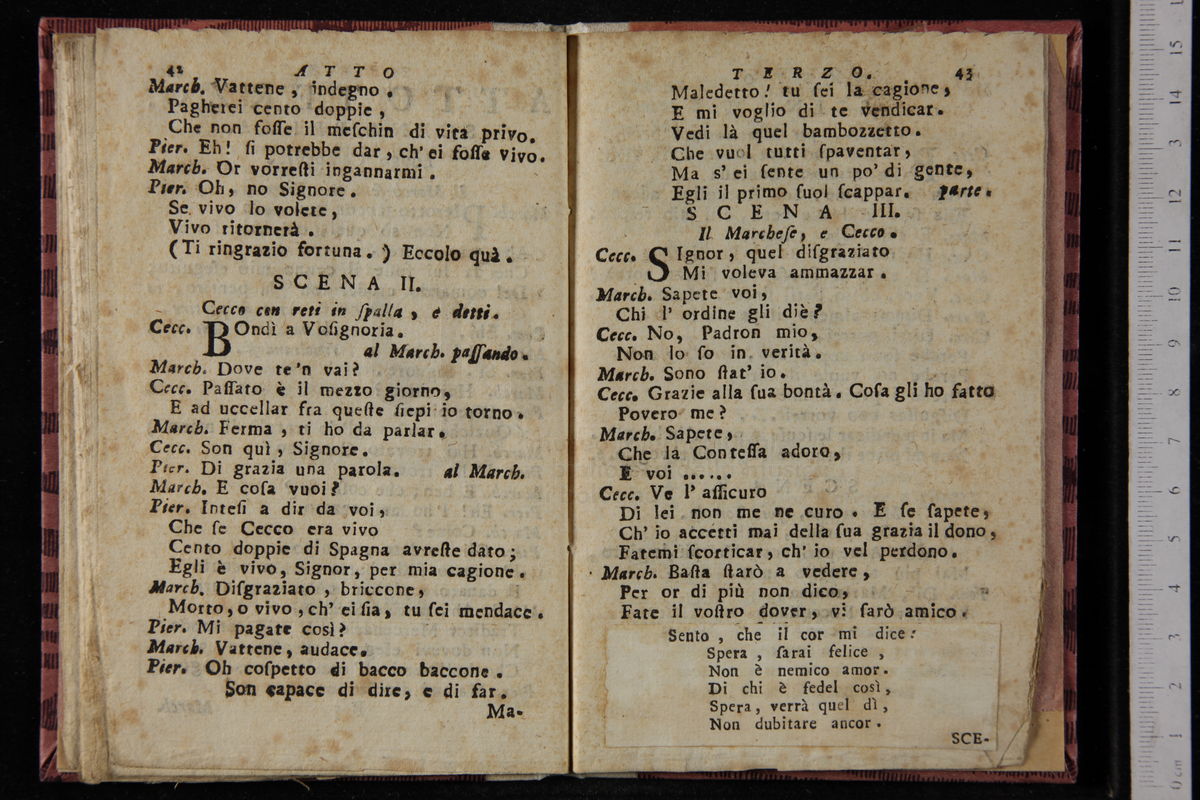 42 ATTO
March. Vattene, indegno.
Pagherei cento doppie,
Che non foſſe il meſchin di vita privo.
Pier. Eh! ſi potrebbe dar, ch' ei foſſe vivo.
March. Or vorreſti ingannarmi.
Pier. Oh, no Signore.
Se vivo lo volete,
Vivo ritornerà.
(Ti ringrazio fortuna.) Eccolo quà.
SCENA II.
Cecco con reti in ſpalla, e detti.
Cecc. BOndì a Voſignoria.
al March. paſſando.
March. Dove te'n vai?
Cecc. Paſſato è il mezzo giorno,
E ad uccellar fra queſte ſiepi io torno.
March. Ferma, ti ho da parlar.
Cecc. Son quì, Signore.
Pier. Di grazia una parola. al March.
March. E coſa vuoi?
Pier. Inteſi a dir da voi,
Che ſe Cecco era vivo
Cento doppie di Spagna avreſte dato;
Egli è vivo, Signor, per mia cagione.
March. Diſgraziato, briccone,
Morto, o vivo, ch' ei ſia, tu ſei mendace.
Pier. Mi pagate così?
March. Vattene, audace.
Pier. Oh coſpetto di bacco baccone.
Son capace di dire, e di far.
Ma-
TERZO. 43
Maledetto! tu ſei la cagione,
E mi voglio di te vendicar.
Vedi là quel bambozzetto.
Che vuol tutti ſpaventar,
Ma s' ei ſente un po' di gente,
Egli il primo ſuol ſcappar. parte.
SCENA III.
Il Marcheſe, e Cecco.
Cecc. SIgnor, quel diſgraziato
Mi voleva ammazzar.
March. Sapete voi,
Chi l' ordine gli diè?
Cecc. No, Padron mio,
Non lo ſo in verità.
March. Sono ſtat' io.
Cecc. Grazie alla ſua bontà. Coſa gli ho fatto
Povero me?
March. Sapete,
Che la Conteſſa adoro,
E voi ......
Cecc. Ve l' aſſicuro
Di lei non me ne curo. E ſe ſapete,
Ch' io accetti mai della ſua grazia il dono,
Fatemi ſcorticar, ch' io vel perdono.
March. Baſta ſtarò a vedere,
Per or di più non dico,
Fate il voſtro dover, vi ſarò amico.
Sento, che il cor mi dice:
Spera, ſarai felice,
Non è nemico amor.
Di chi è fedel così,
Spera, verrà quel dì,
Non dubitare ancor.
SCE-
15
14
13
12
11
10
9
8
7
6
5
4
3
2
1
0 cm